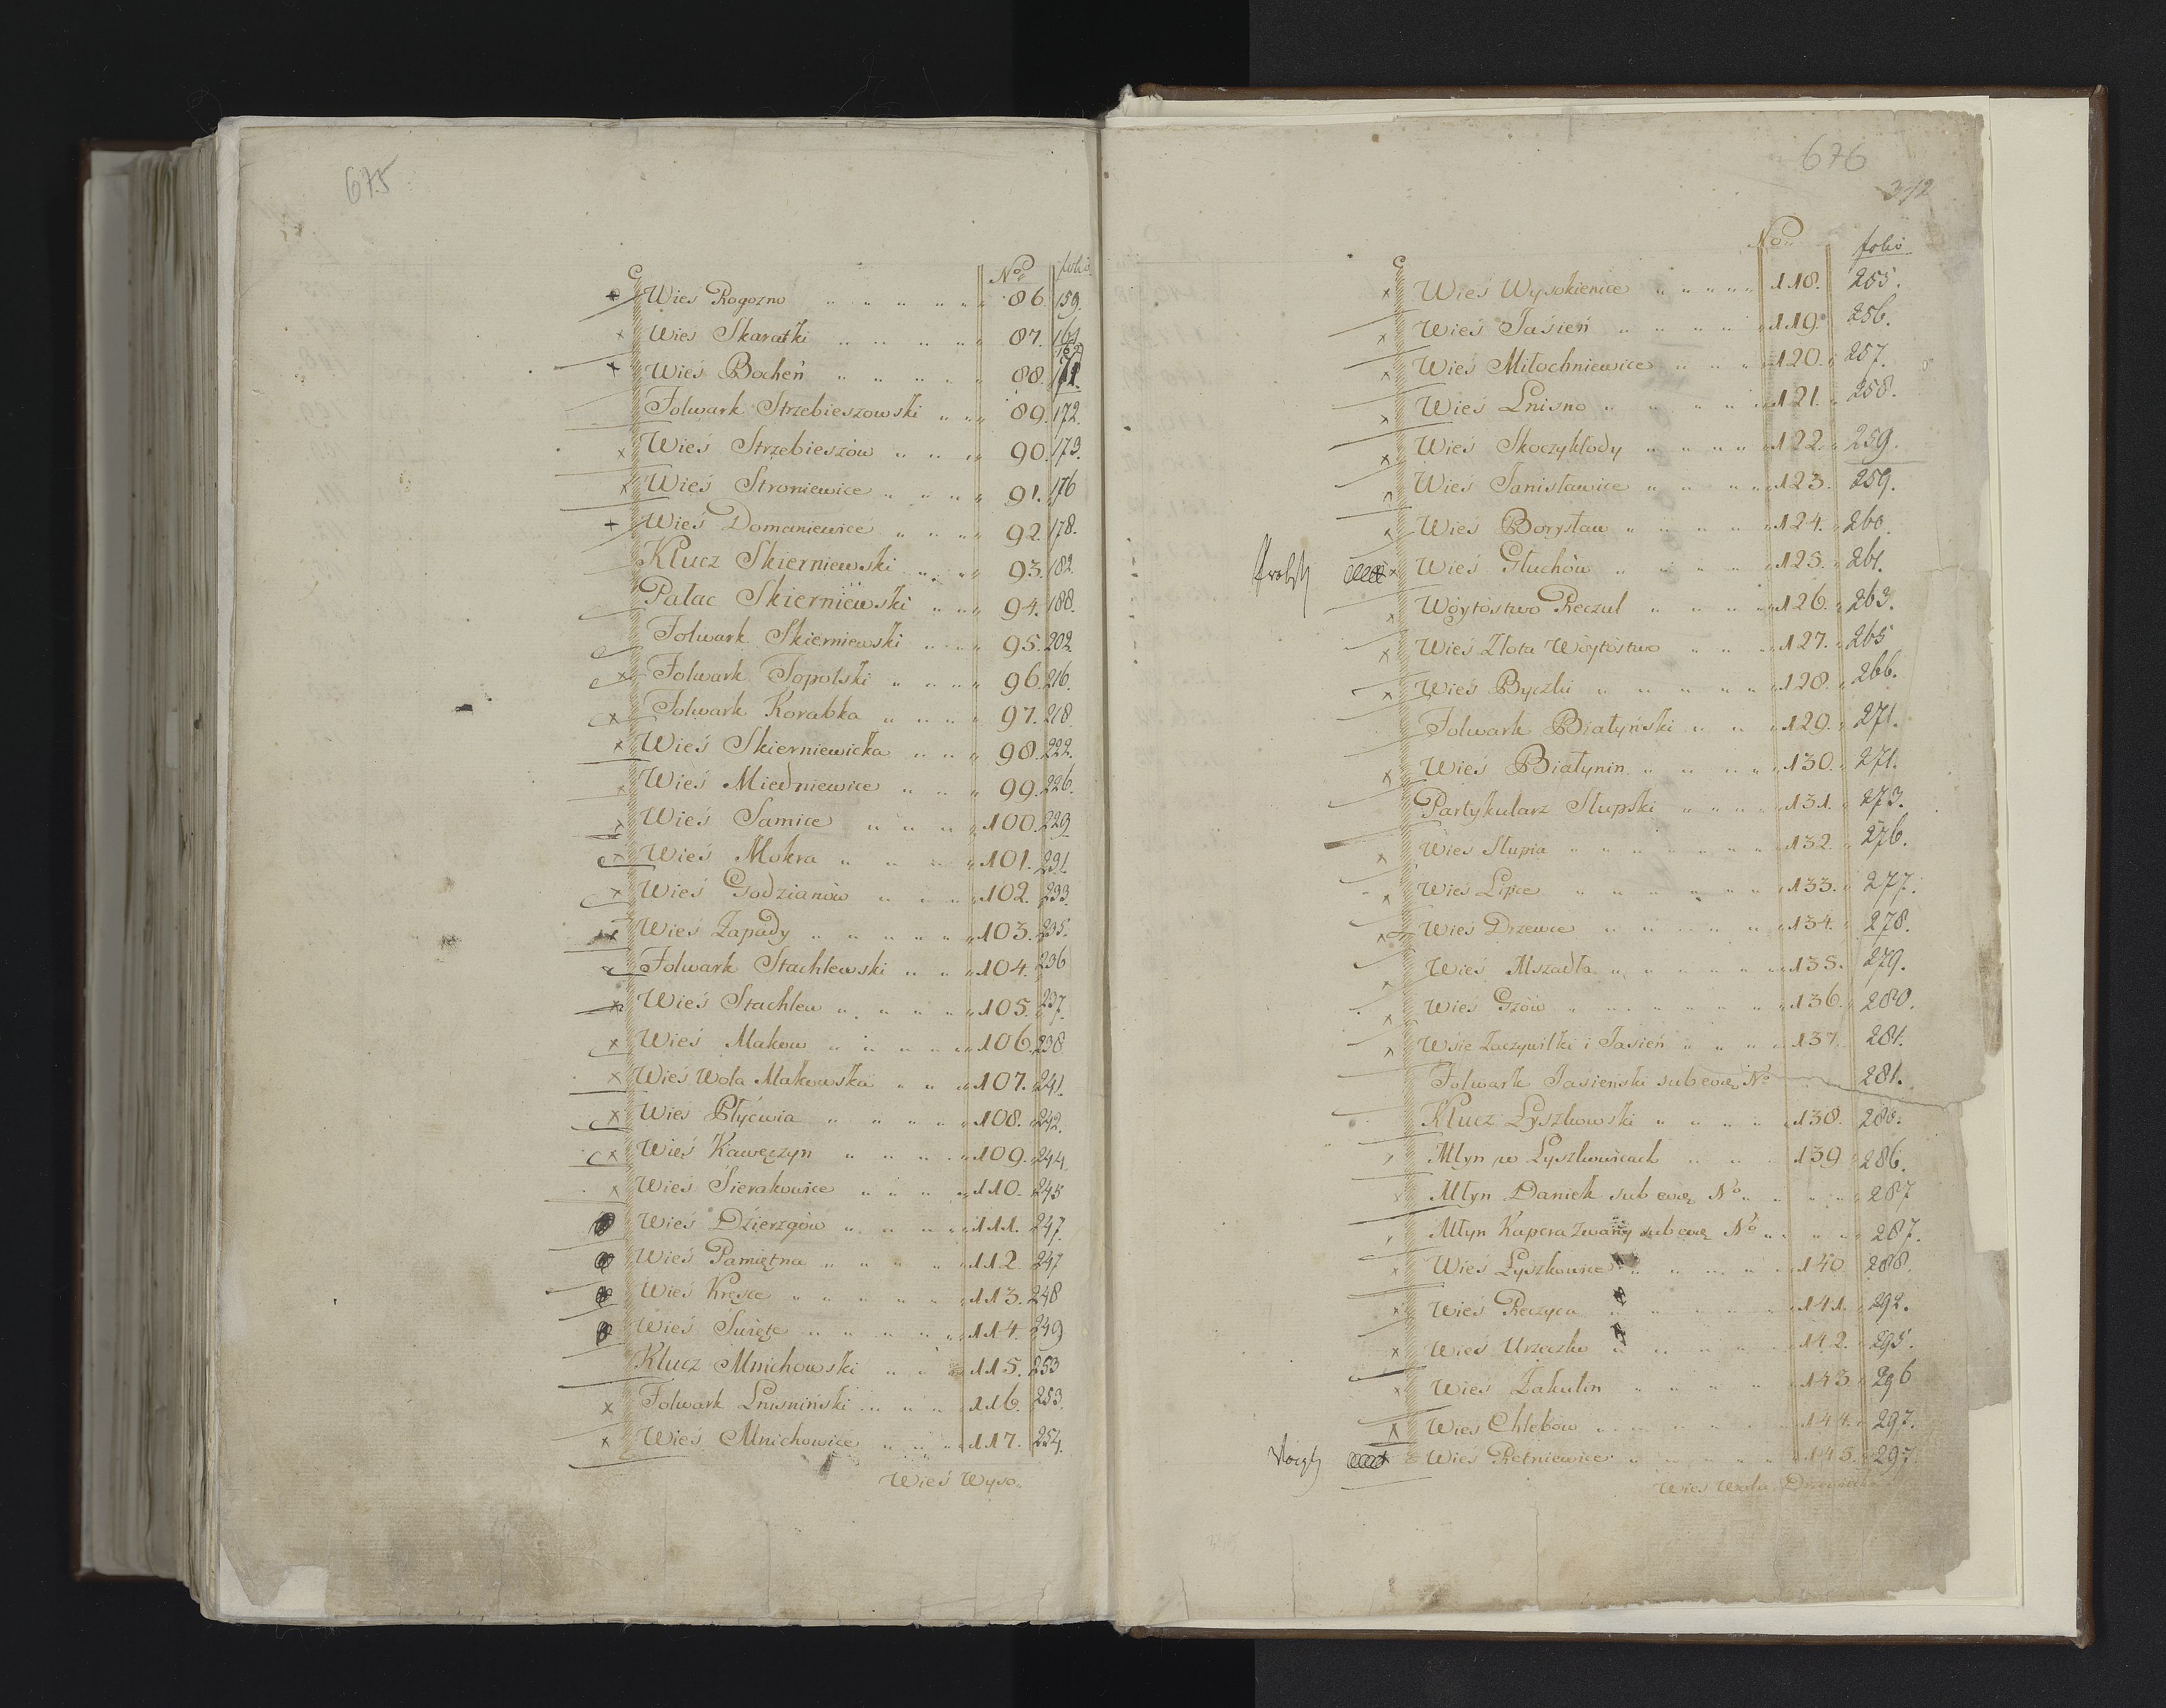 675
No folio
Wies Rogozno 86. 159.
Wies Skaratki 87. 161
Wieś Bocheń 88. 171.
Folwark Strzebieszowski 89. 172.
Wieś Strzebieszów 90. 173.
Wieś Stroniewice 91. 176
Wieś Domaniewice 92. 178.
Klucz Skierniewski 93. 182
Pałac Skierniewski 94. 188.
Folwark Skierniewski 95. 202.
Folwark Topolski 96. 216.
Folwark Korabka 97. 218.
Wieś Skierniewicka 98. 222.
Wieś Miedniewice 99. 226.
Wieś Samice 100. 229
Wieś Mokra 101. 231
Wieś Godzianów 102. 233.
Wieś Zapady 103. 235.
Folwark Stachlewski 104. 236
Wieś Stachlew 105. 237.
Wieś Makow 106. 238.
Wieś Wola Makowska 107. 241.
Wieś Płyćwia 108. 242.
Wieś Kawęczyn 109. 244.
Wieś Sierakowice 110. 245
Wieś Dzierzgów 111. 247.
Wieś Pamiętna 112. 247
Wieś Kręzce 113. 248
Wieś Święte 114. 249
Klucz Mnichowski 115. 253
Folwark Lnisniński 116. 253.
Wieś Mnichowice 117. 254.
Wieś Wyso.
676
372
No folio
Wieś Wysokienice 118. 255.
Wieś Jasień 119. 256.
Wieś Miłochniewice 120. 257.
Wieś Lnisno 121. 258.
Wieś Skoczykłody 122. 259.
Wieś Janisławice 123. 259.
Wieś Borysław 124. 260
Wieś Głuchów 125. 261.
Wóytostwo Reczul 126. 263.
Wieś Złota Wóytostwo 127. 265
Wieś Byczki 128. 266.
Folwark Białyński 129. 271.
Wieś Białynin 130. 271.
Partykularz Slupski 131. 273.
Wieś Slupia 132. 276.
Wieś Lipce 133. 277.
Wieś Drzewce 134. 278.
Wieś Mszadła 135. 279.
Wieś Gzów 136. 280.
Wsie Zaczywilki i Jasień 137. 281.
Folwark Jasienski sub eodę No 281.
Klucz Łyszkowski 138. 283.
Młyn w Łyszkowicach 139 286.
Młyn Daniek sub eodę No 287
Młyn Kapera zwany sub eodę No 287.
Wieś Łyszkowice 140 288.
Wieś Reczyca 141. 292.
Wieś Urzeczko 142. 295.
Wieś Zakulin 143. 296
Wieś Chlebów 144. 297.
Wieś Retniewice 145. 297.
Wieś Wola